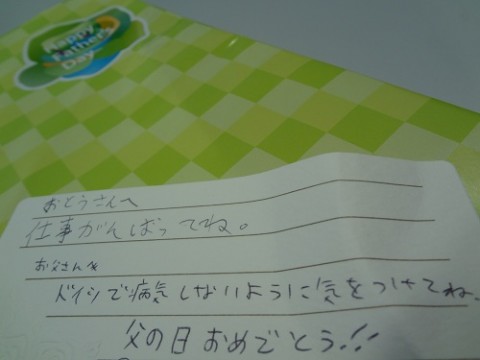 Happy
Father's
Day
おとうさんへ
仕事がんばってね。
お父さんへ
ドイツで病気しないように気をつけてね。
父の日おめでとう!!